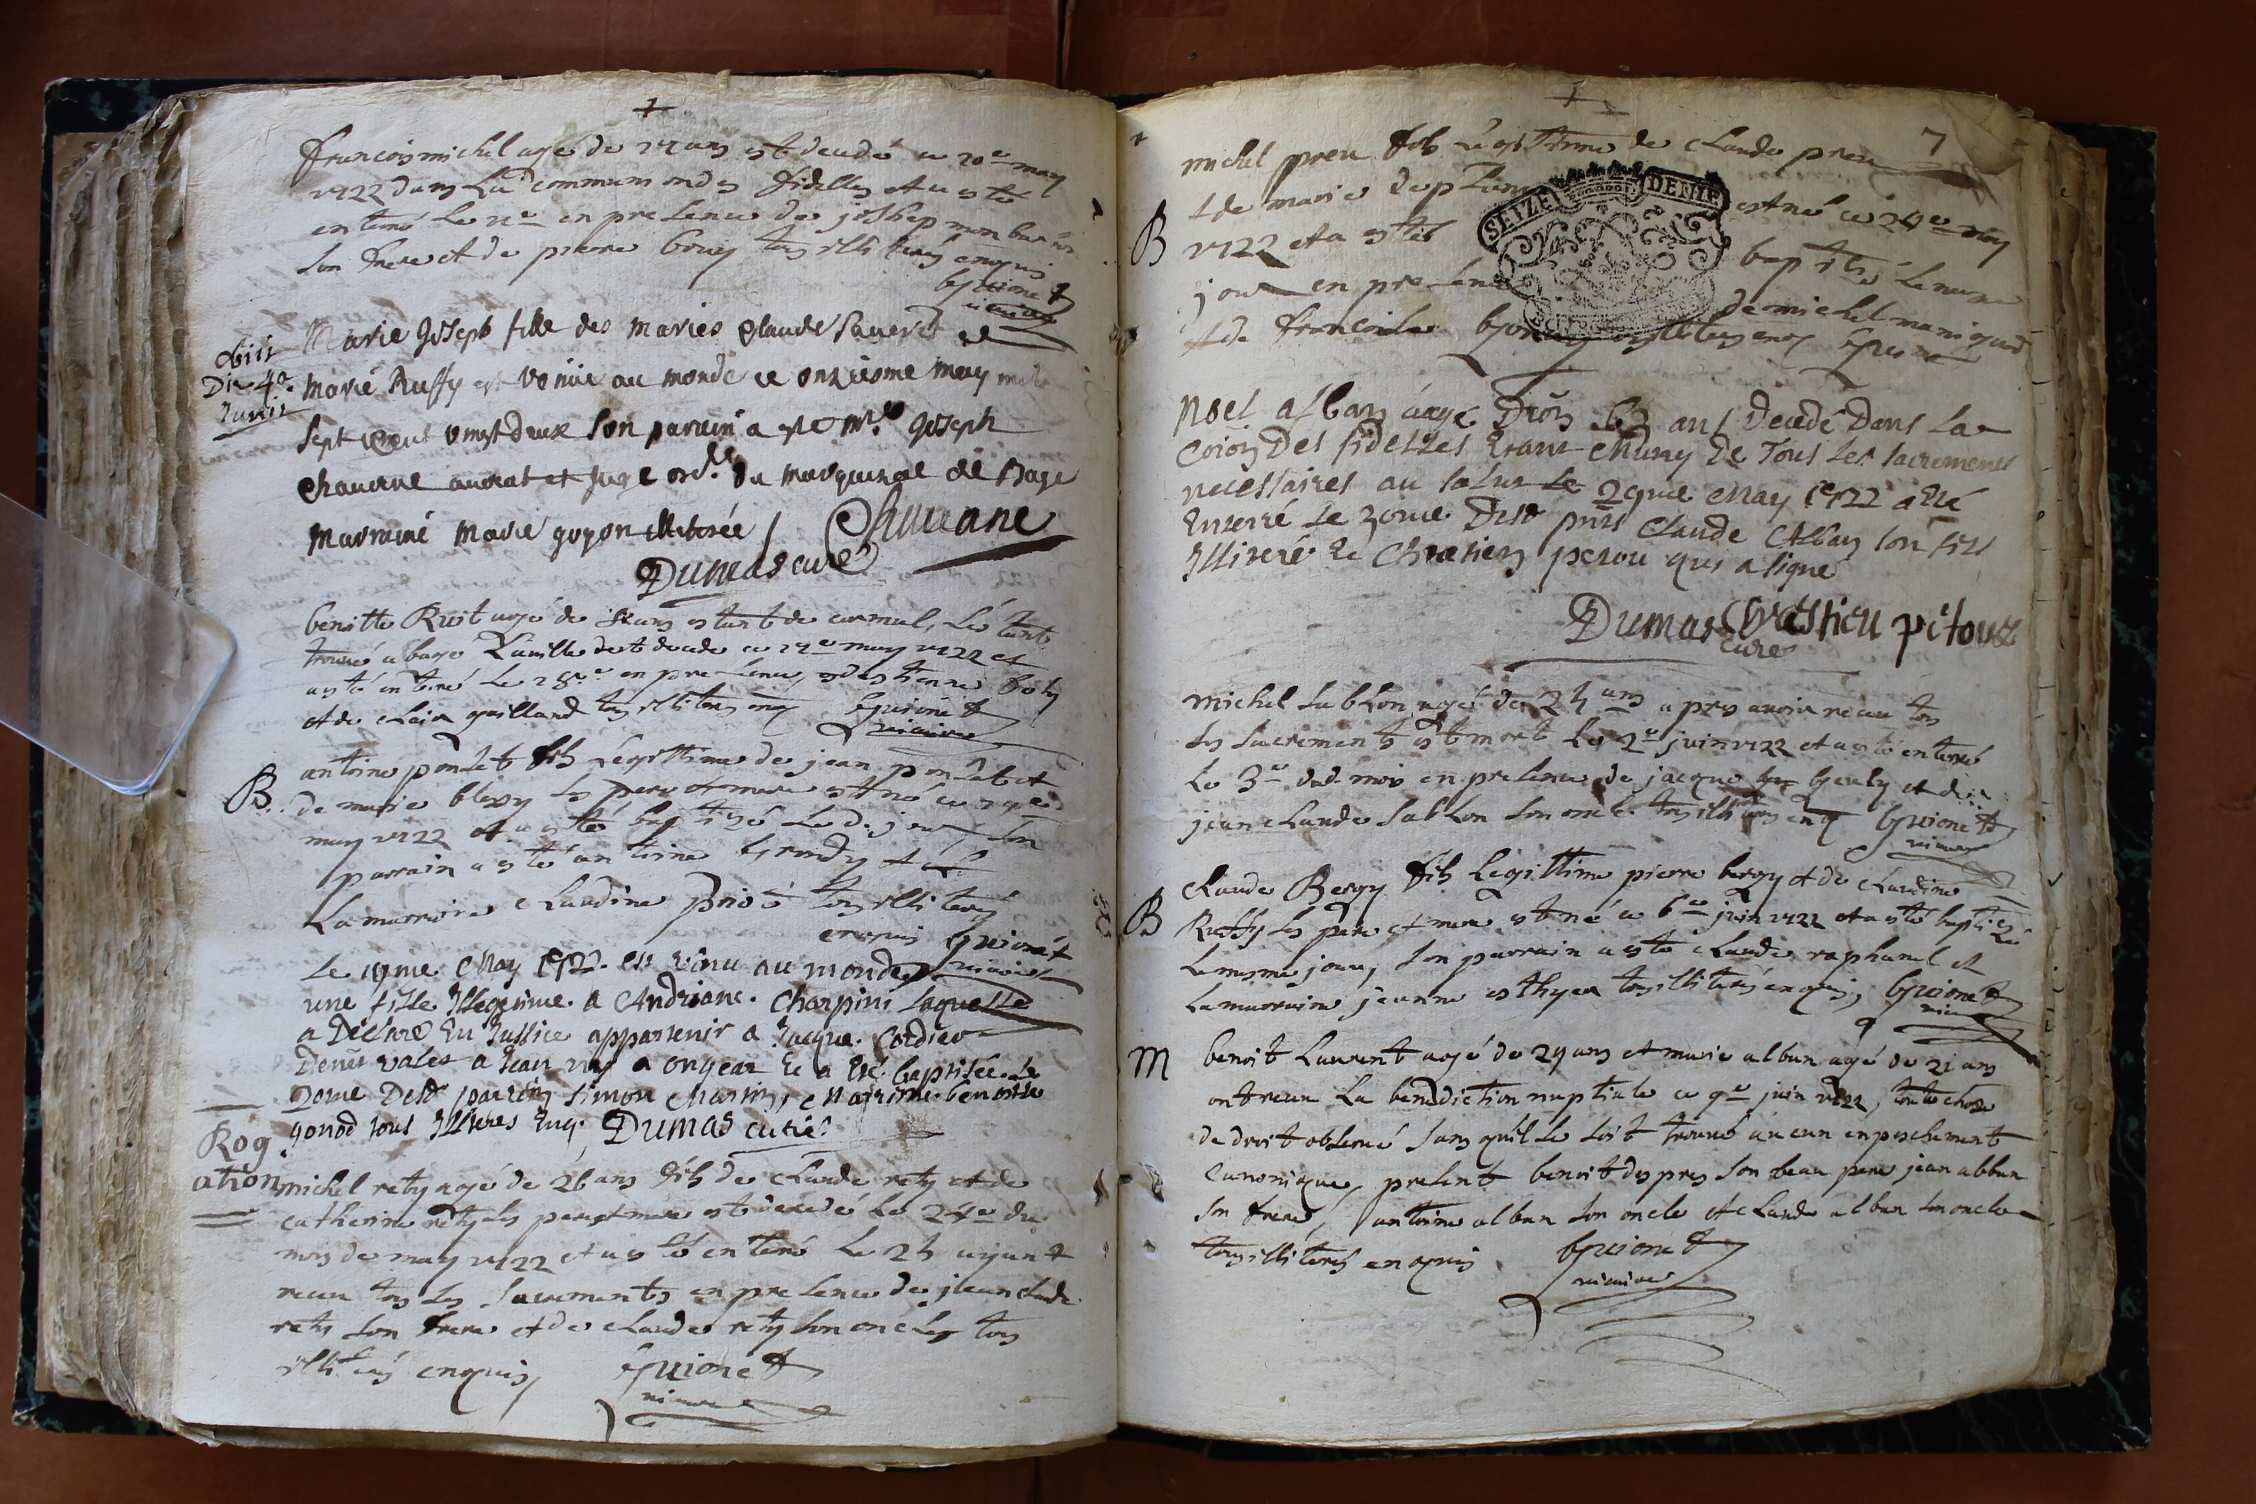 francois michel agé de ans est decedé ce 10e may
1722 dans La communion des fidelles et a esté
enterré le en presence de joshep
son frere et de pierre Gouy tous illiterés enquis
Guionet
vicaire
obiit
Die 4a
Junii
Marie Joseph fille des maries Claude Saveret et
marie Ruffy est venue au monde ce onzieme may mil
sept cent vingt deux son parrein a esté Mre Joseph
Chauerne auocat et Juge ord.re du marquisat de Bage
marraine marie guyon illiterée / Chauuane
Dumas curé
benitte Rust agé de ans estant de cormul, s'etant
trouvé a bage La ville est decedé ce may 1722 et
a esté enterré Le en presence d'estienne
et de Clair guilland tous illiterés enq Guionet
vicaire
B
antoine ponset fils Legittime de jean ponset et
de marie blessy les pere et mere est né ce
may 1722 et a esté baptizé Le d. jour son
parrain a esté antoine Grondy et
La marraine Claudine illiterés
enquis Guionet
vicaire
Le may 1722. est venu au monde
une fille Illegitime. a Andriane. Charpini laquelle
a Déclaré En Justice appartenir a Jacque. Cordier
valet a Jean a ongear Et a Eté. baptisée. Le
2ome Dud parrein Simon Martin, Marrine. benoitte
gonod tous Illiteres Enq. Dumas curé
Rog
ation
michel rety agé de 26 ans fils de Claude rety et de
catherine rety les pere et mere est decedé Le 24e du
mois de may 1722 et a esté enterré Le 25 ayant
receu tous Les Sacrements en presence de jean clude
rety son frere et de Claude rety son oncle tous
illiterés enquis, Guionet
vicaire
7
michel preu fils Legittime de Claude preu
SEIZE DENIE
et de marie est né ce 24e may
B
1722 et a esté baptisé Le mesme
jour en presence de michel manigand
et de francoise Guionet
Noel alban aagé D'environ 63 ans Decedé Dans La
Coion Des fidelles Etant Muny De Tous Les sacrements
necessaires au salut Le 29me May 1722 a Eté
Enterré le 30me Dud pnts Claude Alban son fils
Illiteré Et Chrestien petou qui a signé
Dumas Chrestien petoux
curé
michel sablon agé de 25 ans apres avoir receu tous
les sacrements est mort Le 2e juin 1722 et a esté enterré
Le 3e dud. mois en presence de jacque Geuly et de
jean Claude Sablon son oncle tous illiterés enq Guionet
vicaire
B
Claude Bergy fils Legittime pierre bergy et de Claudine
Ruffy les pere et mere est né ce 6e juin 1722 et a esté baptisé
Le mesme jour, son parrain a esté Claude raphanel et
La marraine, jeanne esthyer tous illiterés enquis, Guionet
vicaire
M
benoit Laurent agé de 29 ans et marie alban agé de 21 ans
ont receu La benediction nuptiale ce 9e juin 1722, toute chose
de droit observé sans qu'il se soit trouvé aucun enpeschement
Canonique, present benoit despres son beau pere jean alban
son frere, antoine alban son oncle et Claude alban son oncle
tous illiterés enquis Guionet
vicaire